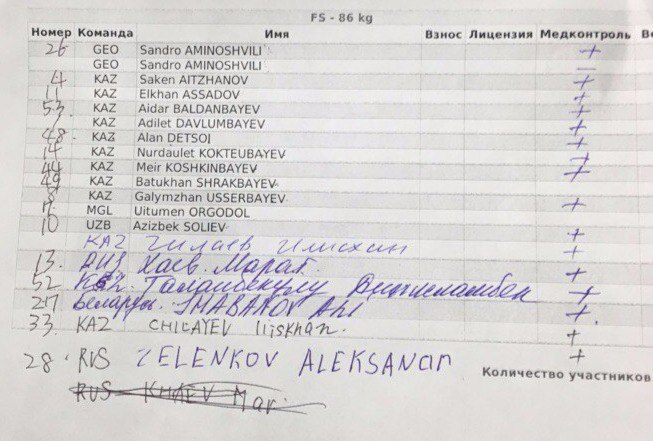 FS - 86 kg
Номер Команда Имя Взнос Лицензия Медконтроль
26 GEO Sandro AMINOSHVILI +
GEO Sandro AMINOSHVILI —
4 KAZ Saken AITZHANOV +
11 KAZ Elkhan ASSADOV +
53 KAZ Aidar BALDANBAYEV +
KAZ Adilet DAVLUMBAYEV +
48 KAZ Alan DETSOI +
14 KAZ Nurdaulet KOKTEUBAYEV +
44 KAZ Meir KOSHKINBAYEV +
49 KAZ Batukhan SHRAKBAYEV
8 KAZ Galymzhan USSERBAYEV +
MGL Uitumen ORGODOL
10 UZB Azizbek SOLIEV +
KAZ Чилаев Илисхан +
13. RUS Хаев. Марат. +
52 +
27 Беларусь. SHABANOV Ali +
33. KAZ CHILAYEV Iliskhan. +
28. RUS ZELENKOV ALEKSANDR +
Количество участников
RUS KHAEV Mar